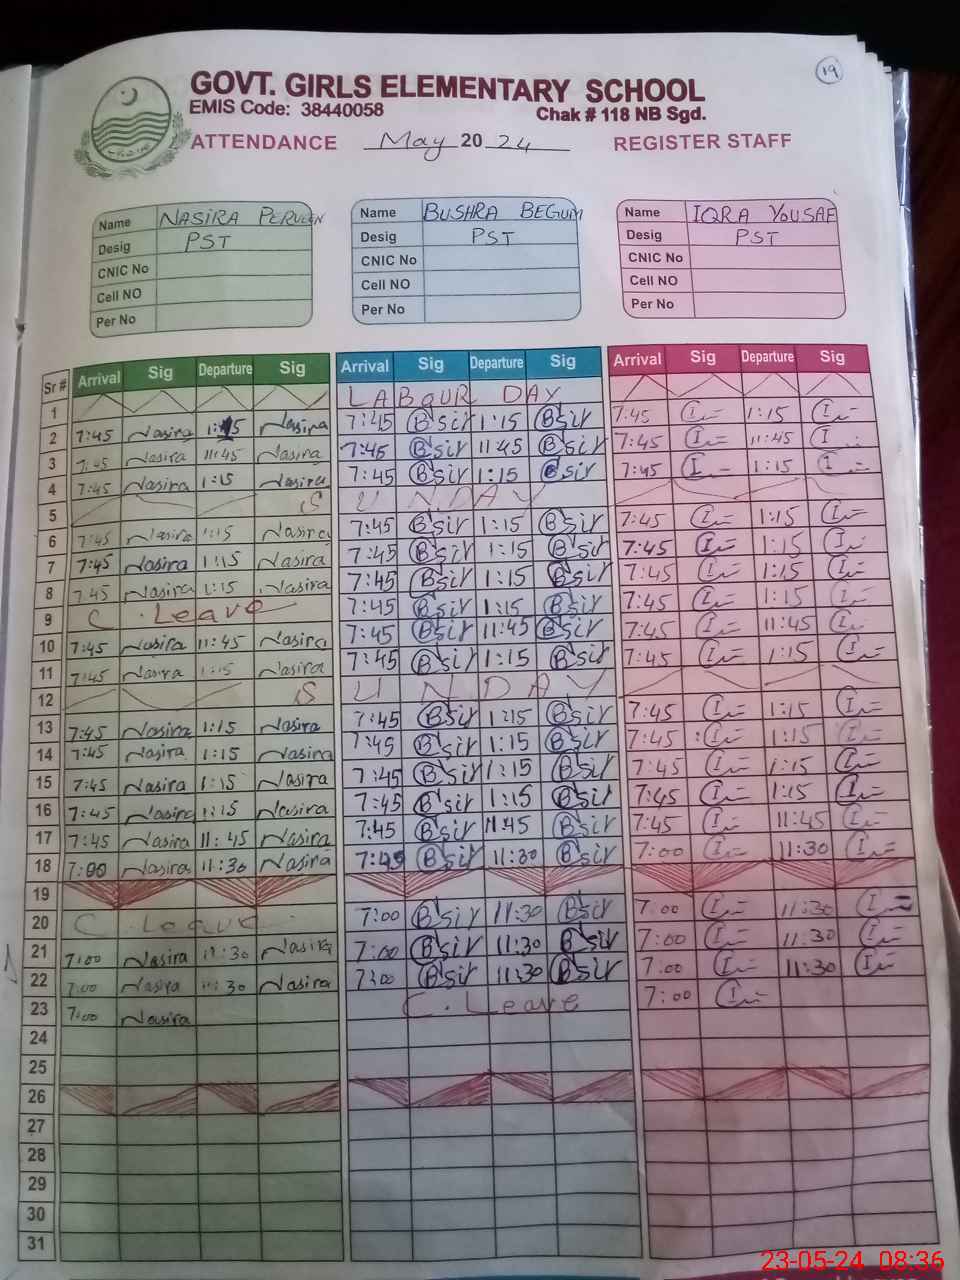 19
GOVT. GIRLS ELEMENTARY SCHOOL
EMIS Code: 38440058 Chak # 118 NB Sgd.
ATTENDANCE May 2024 REGISTER STAFF
Name NASIRA PERVEEN Name BUSHRA BEGUM Name IQRA YOUSAF
Desig PST Desig PST Desig PST
CNIC No CNIC No CNIC No
Cell NO Cell NO Cell NO
Per No Per No Per No
Sr # Arrival Sig Departure Sig Arrival Sig Departure Sig Arrival Sig Departure Sig
1 LABOUR DAY
2 7:45 Nasira 1:15 Nasira 7:45 Bsir 1:15 Bsir 7:45 I 1:15 I
3 7:45 Nasira 11:45 Nasira 7:45 Bsir 11:45 Bsir 7:45 I 11:45 I
4 7:45 Nasira 1:15 Nasira 7:45 Bsir 1:15 Bsir 7:45 I 1:15 I
5 SUNDAY
6 7:45 Nasira 1:15 Nasira 7:45 Bsir 1:15 Bsir 7:45 I 1:15 I
7 7:45 Nasira 1:15 Nasira 7:45 Bsir 1:15 Bsir 7:45 I 1:15 I
8 7:45 Nasira 1:15 Nasira 7:45 Bsir 1:15 Bsir 7:45 I 1:15 I
9 C. Leave 7:45 Bsir 1:15 Bsir 7:45 I 1:15 I
10 7:45 Nasira 11:45 Nasira 7:45 Bsir 11:45 Bsir 7:45 I 11:45 I
11 7:45 Nasira 1:15 Nasira 7:45 Bsir 1:15 Bsir 7:45 I 1:15 I
12 SUNDAY
13 7:45 Nasira 1:15 Nasira 7:45 Bsir 1:15 Bsir 7:45 I 1:15 I
14 7:45 Nasira 1:15 Nasira 7:45 Bsir 1:15 Bsir 7:45 I 1:15 I
15 7:45 Nasira 1:15 Nasira 7:45 Bsir 1:15 Bsir 7:45 I 1:15 I
16 7:45 Nasira 1:15 Nasira 7:45 Bsir 1:15 Bsir 7:45 I 1:15 I
17 7:45 Nasira 11:45 Nasira 7:45 Bsir 11:45 Bsir 7:45 I 11:45 I
18 7:00 Nasira 11:30 Nasira Bsir 11:30 Bsir 7:00 I 11:30 I
19
20 C. Leave 7:00 Bsir 11:30 Bsir 7:00 I 11:30 I
21 7:00 Nasira 11:30 Nasira 7:00 Bsir 11:30 Bsir 7:00 I 11:30 I
22 7:00 Nasira 11:30 Nasira 7:00 Bsir 11:30 Bsir 7:00 I 11:30 I
23 7:00 Nasira C. Leave 7:00 I
24
25
26
27
28
29
30
31
23-05-24 08:36